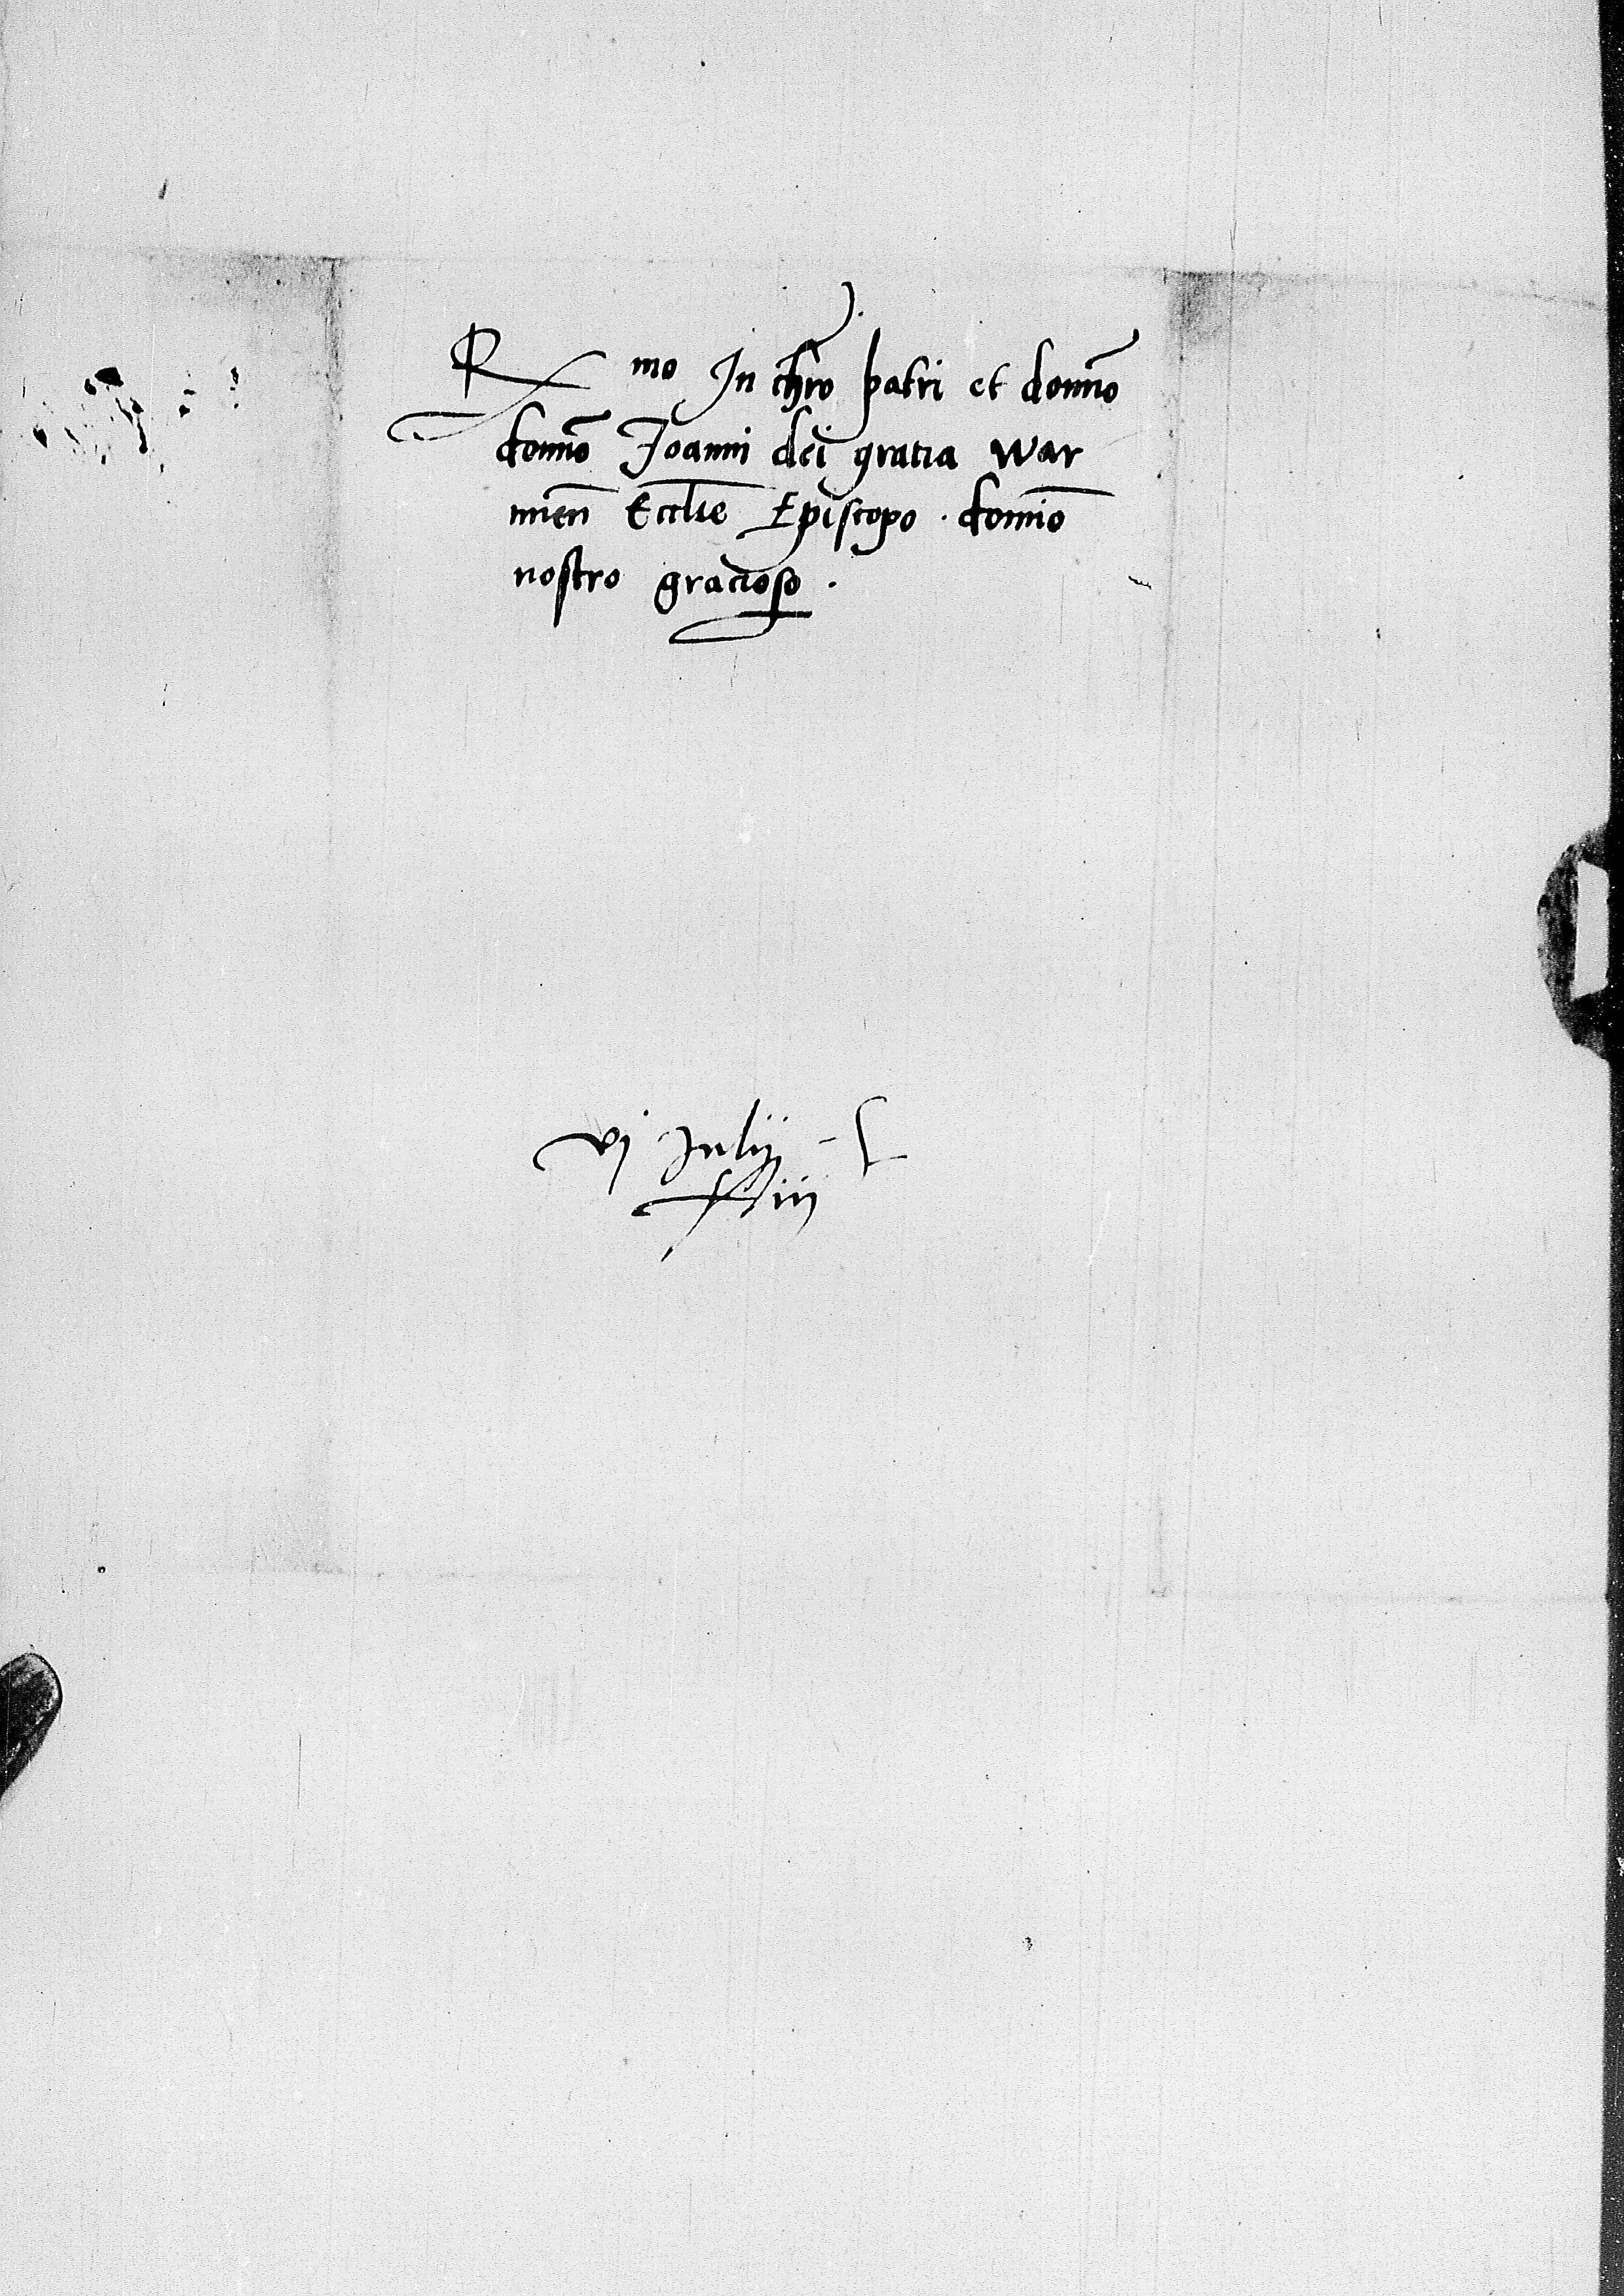 R mo In chro patri et domno
domno Joanni dei gratia war
mien̄ Ecclie Episcopo . domio
nostro gracioso .
vj Julij -